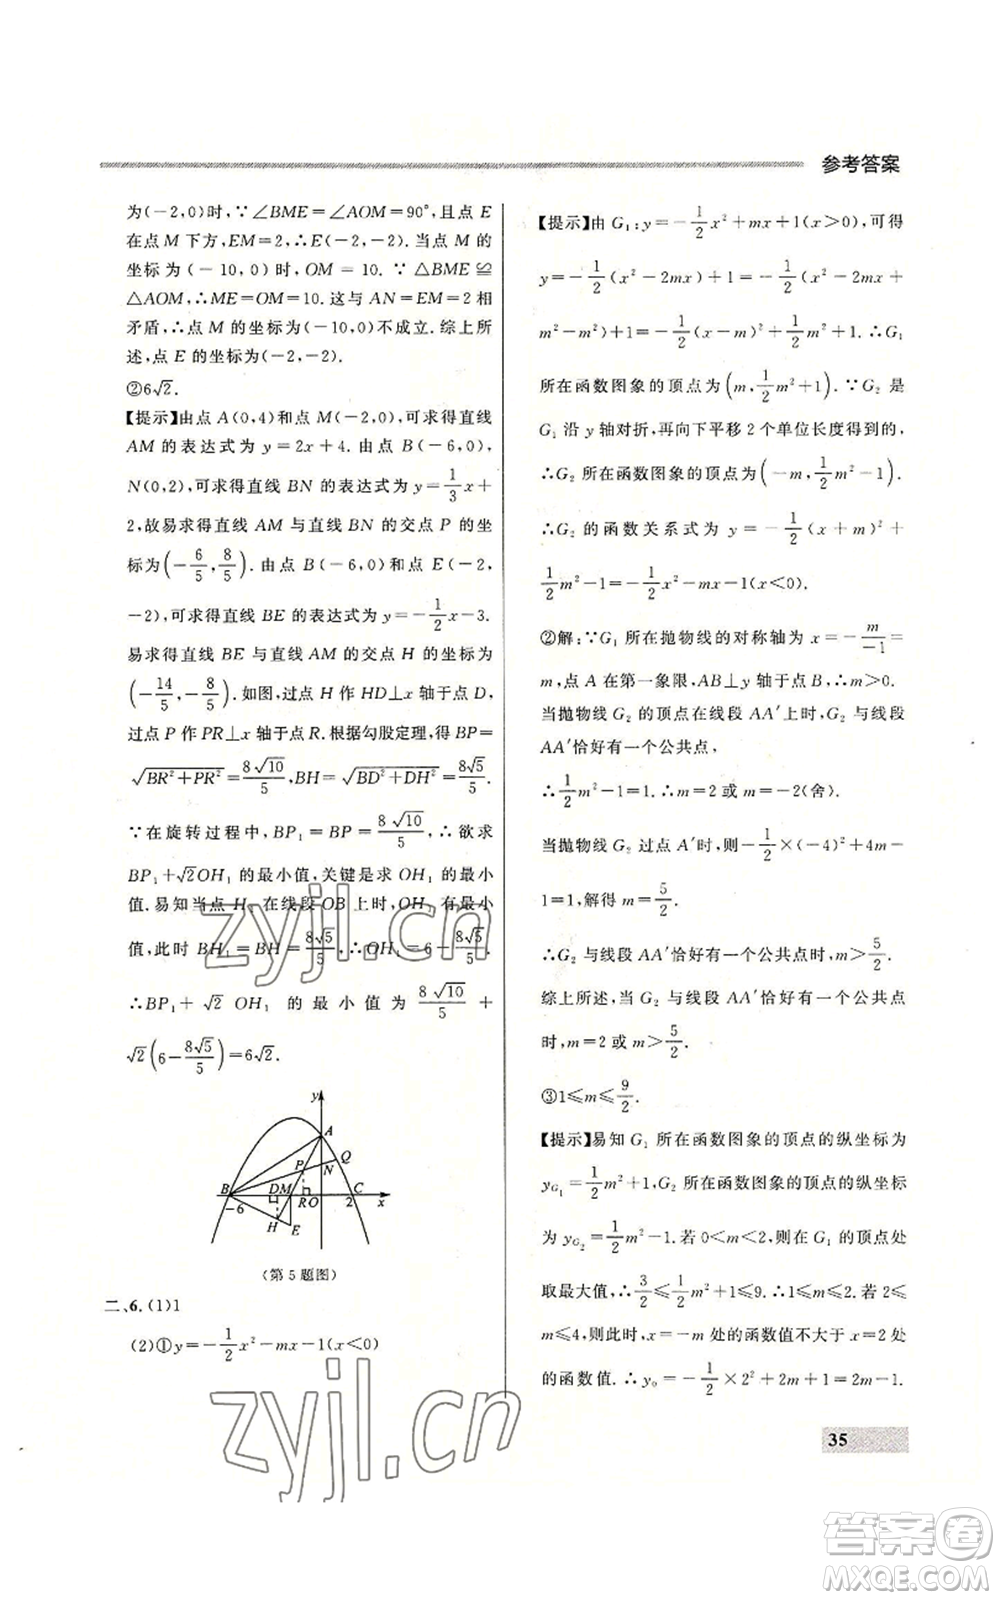 参考答案
为(-2,0)时,∵∠BME=∠AOM=90°,且点 E
在点 M 下方,EM=2,∴E(-2,-2).当点 M 的
坐标为(-10,0)时,OM=10.∵△BME≌
△AOM,∴ME=OM=10.这与 AN=EM=2 相
矛盾,∴点 M 的坐标为(-10,0)不成立.综上所
述,点 E 的坐标为(-2,-2).
②6√2.
【提示】由点 A(0,4)和点 M(-2,0),可求得直线
AM 的表达式为 y=2x+4.由点 B(-6,0),
N(0,2),可求得直线 BN 的表达式为 y=1/3x+
2,故易求得直线 AM 与直线 BN 的交点 P 的坐
标为(-6/5,8/5).由点 B(-6,0)和点 E(-2,
-2),可求得直线 BE 的表达式为 y=-1/2x-3.
易求得直线 BE 与直线 AM 的交点 H 的坐标为
(-14/5,-8/5).如图,过点 H 作 HD⊥x 轴于点 D,
过点 P 作 PR⊥x 轴于点 R.根据勾股定理,得 BP=
√(BR²+PR²)=8√10/5,BH=√(BD²+DH²)=8√5/5.
∵在旋转过程中,BP₁=BP=8√10/5,∴欲求
BP₁+√2OH₁ 的最小值,关键是求 OH₁ 的最小
值.易知当点 H₁ 在线段 OB 上时,OH₁ 有最小
值,此时 BH₁=BH=8√5/5,∴OH₁=6-8√5/5.
∴BP₁+√2 OH₁ 的最小值为 8√10/5+
√2(6-8√5/5)=6√2.
y
A
Q
P
N
B
D
M
C
-6
R
O
2
x
H
E
(第 5 题图)
二、6.(1)1
(2)①y=-1/2x²-mx-1(x<0)
【提示】由 G₁:y=-1/2x²+mx+1(x>0),可得
y=-1/2(x²-2mx)+1=-1/2(x²-2mx+
m²-m²)+1=-1/2(x-m)²+1/2m²+1.∴G₁
所在函数图象的顶点为(m,1/2m²+1).∵G₂ 是
G₁ 沿 y 轴对折,再向下平移 2 个单位长度得到的,
∴G₂ 所在函数图象的顶点为(-m,1/2m²-1).
∴G₂ 的函数关系式为 y=-1/2(x+m)²+
1/2m²-1=-1/2x²-mx-1(x<0).
②解:∵G₁ 所在抛物线的对称轴为 x=-m/-1=
m,点 A 在第一象限,AB⊥y 轴于点 B,∴m>0.
当抛物线 G₂ 的顶点在线段 AA′上时,G₂ 与线段
AA′恰好有一个公共点,
∴1/2m²-1=1.∴m=2 或 m=-2(舍).
当抛物线 G₂ 过点 A′时,则-1/2×(-4)²+4m-
1=1,解得 m=5/2.
∴G₂ 与线段 AA′恰好有一个公共点时,m>5/2.
综上所述,当 G₂ 与线段 AA′恰好有一个公共点
时,m=2 或 m>5/2.
③1≤m≤9/2.
【提示】易知 G₁ 所在函数图象的顶点的纵坐标为
yG₁=1/2m²+1,G₂ 所在函数图象的顶点的纵坐标
为 yG₂=1/2m²-1.若 0<m<2,则在 G₁ 的顶点处
取最大值,∴3/2≤1/2m²+1≤9.∴1≤m≤2.若 2≤
m≤4,则此时,x=-m 处的函数值不大于 x=2 处
的函数值.∴y₀=-1/2×2²+2m+1=2m-1.
35
zyjl.cn
zyjl.cn
答案卷
MXQE.COM